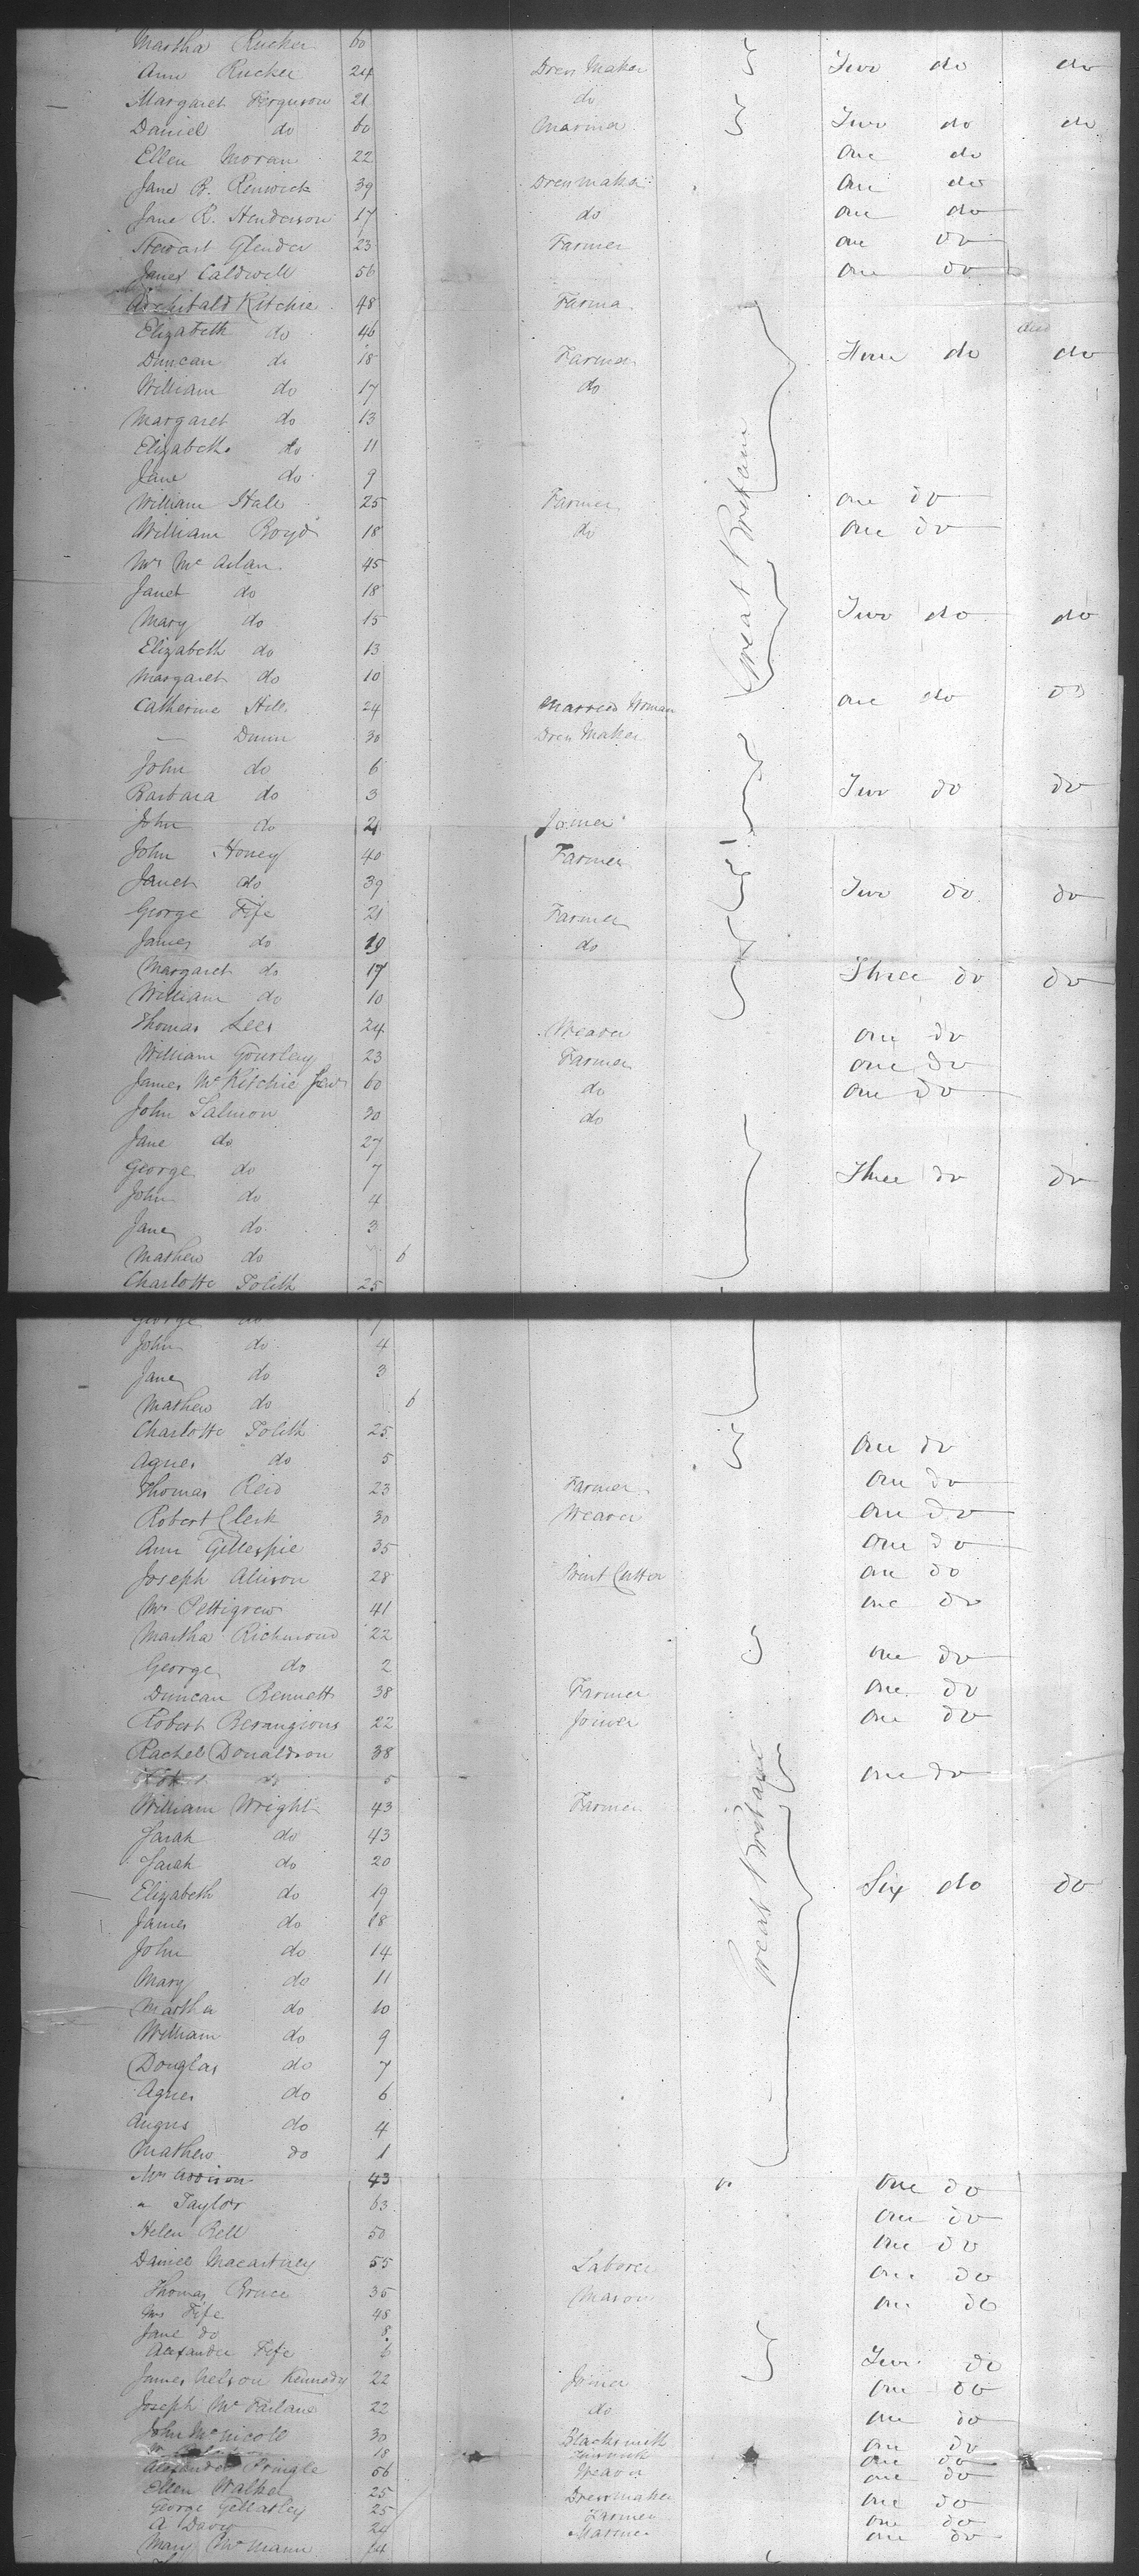 Martha Rucker 60
Ann Rucker 24 Dress Maker Two do do
Margaret Ferguson 21 do
Daniel do 60 Marina Two do do
Ellen Moran 22 One do
Jane B. Renwick 39 Dressmaker One do
Jane R. Henderson 17 do one do
Stewart 23 Farmer one do
James Caldwell 56 one do
Archibald Ritchie 48 Farmer
Elizabeth do 46
Duncan do 18 Farmer do do
William do 17 do
Margaret do 13
Elizabeth do 11
Jane do 9
Great Britain
William Hall 25 Farmer one do
William Boyd 18 do One do
Mrs 45
Janet do 18
Mary do 15 Two do do
Elizabeth do 13
Margaret do 10
Catherine Hill 24 Married Woman one do do
— Dunn 30 Dress Maker
John do 6
Barbara do 3 Two do do
John do 21 Joiner
John Honey 40 Farmer
Janet do 39 Two do do
George Fife 21 Farmer
James do 19 do
Margaret do 17 Three do do
William do 10
Thomas Lees 24 Weaver one do
William Gourley 23 Farmer one do
James McRitchie 60 do one do
John Salmon 30 do
Jane do 27
George do 7 Three do do
John do 4
Jane do 3
Mathew do 6
Charlotte 25
George do 7
John do 4
Jane do 3
Mathew do 6
Charlotte 25
Agnes do 5 One do
Thomas Reid 23 Farmer One do
Robert Clerk 30 Weaver one do
Ann Gillespie 35 One do
Joseph Alison 28 Print Cutter one do
Mrs Pettigrew 41 one do
Martha Richmond 22
George do 2 one do
Duncan Bennett 38 Farmer one do
Robert 22 Joiner one do
Rachel Donaldson 38
do 5 one do
William Wright 43 Farmer
Sarah do 43
Sarah do 20
Elizabeth do 19 Six do do
James do 18
John do 14
Great Britain
Mary do 11
Martha do 10
William do 9
Douglas do 7
Agnes do 6
Angus do 4
Mathew do 1
Mrs Addison 43 One do
" Taylor 63 one do
Helen Bell 50 one do
Daniel Macartney 55 Laborer one do
Thomas Bruce 35 Mason one do
Mrs Fife 48
Jane do 8
Alexander Fife 6 Two do
James Nelson Kennedy 22 Joiner one do
Joseph McFarlane 22 do one do
John McNicoll 30 Blacksmith one do
18 one do
Alexander Pringle 56 Weaver one do
Ellen Walker 25 Dressmaker one do
George 25 Farmer one do
A 24 Mariner one do
Mary McMann 14